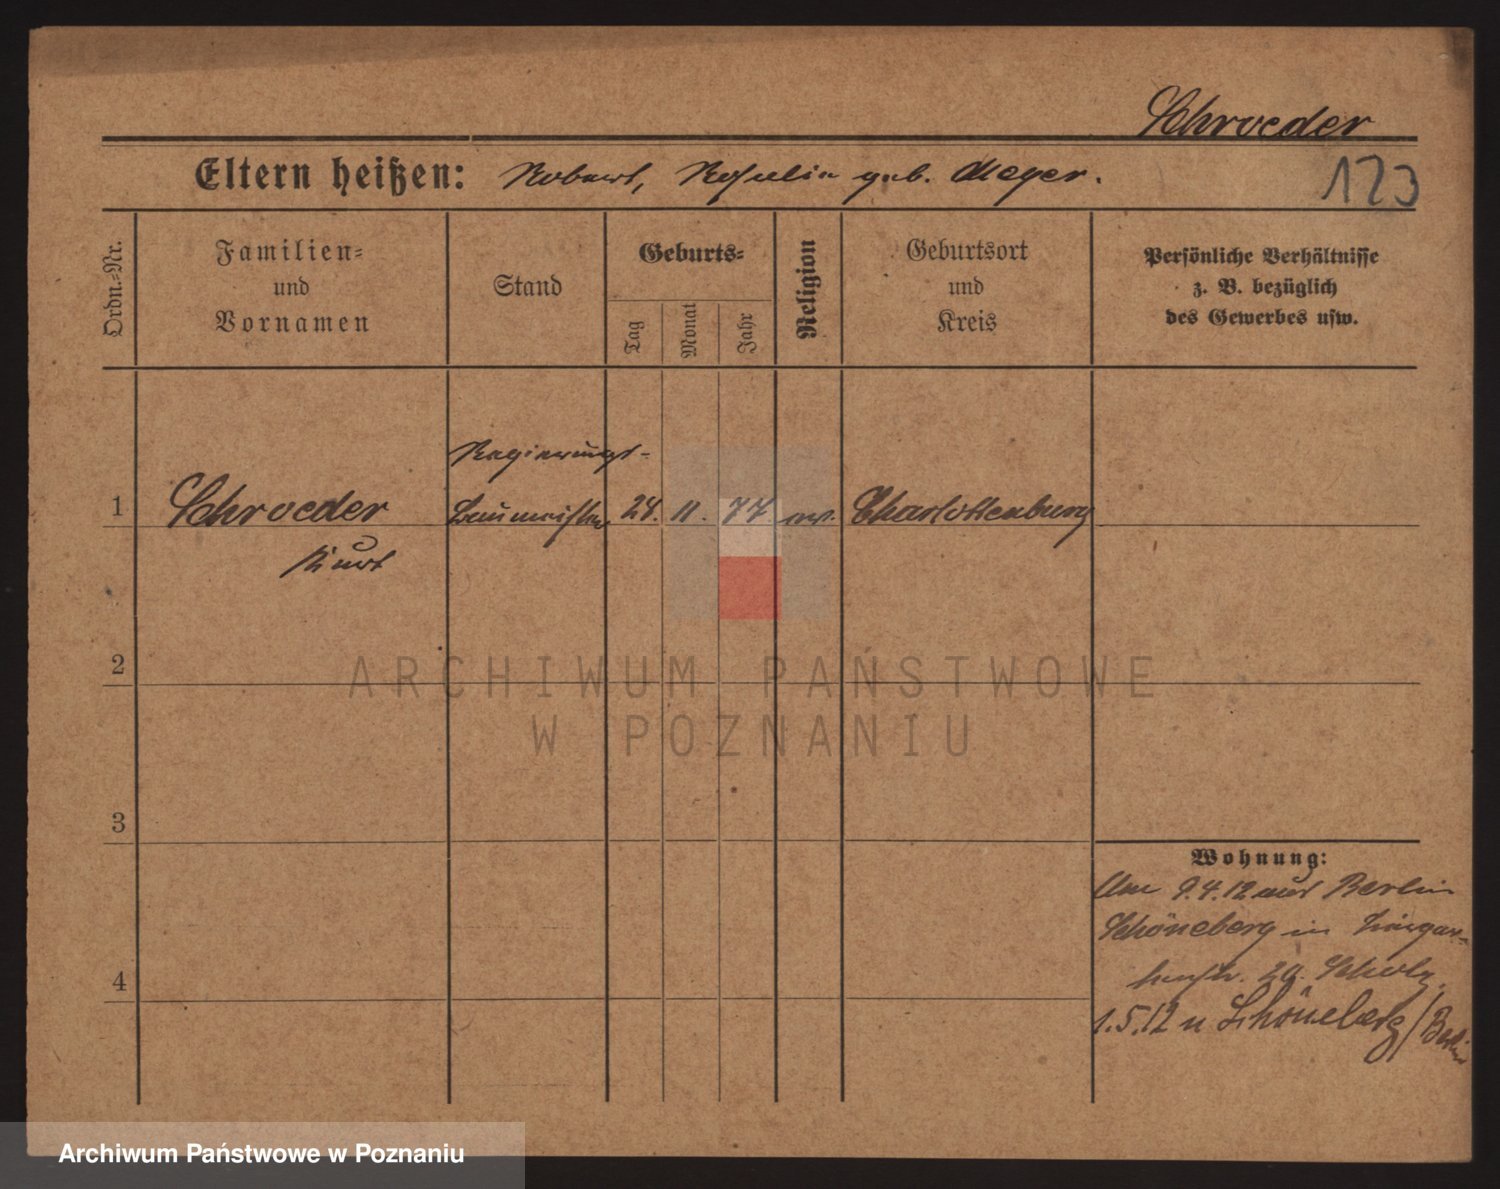 Schroeder
Eltern heißen: Robert, Rosalie geb. Meyer.
123
Ordn.-Nr.
Familien-
und
Vornamen
Stand
Geburts-
Tag
Monat
Jahr
Religion
Geburtsort
und
Kreis
Persönliche Verhältnisse
z. B. bezüglich
des Gewerbes usw.
Regierungs-
1 Schroeder Baumeister 24. 11. 77. ev. Charlottenburg
Kurt
2
3
4
Wohnung:
Am 9.4.12 aus Berlin
Schöneberg in
20. Scholz
1.5.12 n Schöneberg/Berlin
ARCHIWUM PAŃSTWOWE
W POZNANIU
Archiwum Państwowe w Poznaniu